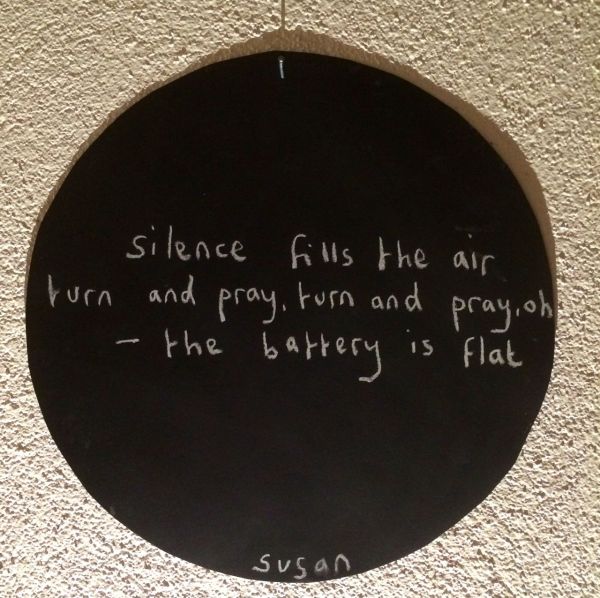 silence fills the air
turn and pray, turn and pray, oh
- the battery is flat
susan